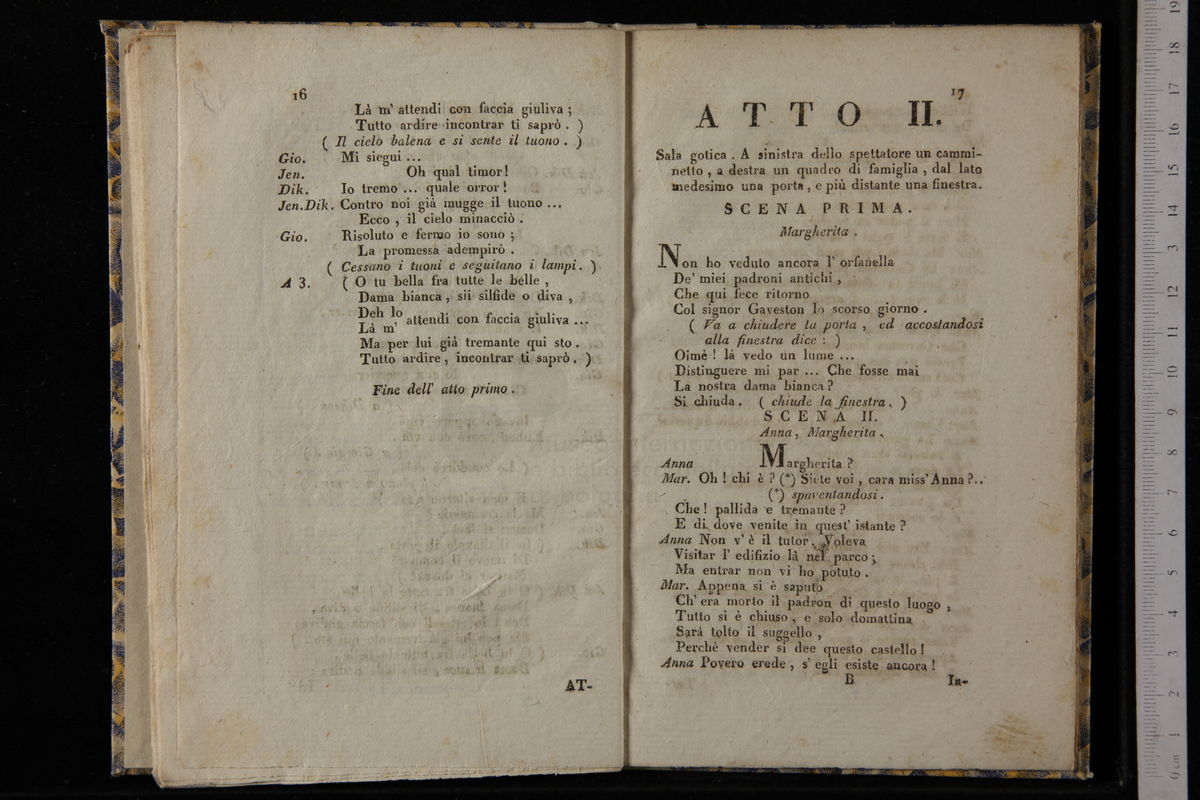 16
Là m' attendi con faccia giuliva ;
Tutto ardire incontrar ti saprò . )
( Il cielo balena e si sente il tuono . )
Gio. Mi siegui ...
Jen. Oh qual timor!
Dik. Io tremo ... quale orror!
Jen.Dik. Contro noi già mugge il tuono ...
Ecco , il cielo minacciò .
Gio. Risoluto e fermo io sono ;
La promessa adempirò .
( Cessano i tuoni e seguitano i lampi. )
A 3. ( O tu bella fra tutte le belle ,
Dama bianca , sii silfide o diva ,
Deh lo
Là m' attendi con faccia giuliva ...
Ma per lui già tremante qui sto .
Tutto ardire , incontrar ti saprò . )
Fine dell' atto primo .
AT-
17
ATTO II.
Sala gotica . A sinistra dello spettatore un cammi-
netto , a destra un quadro di famiglia , dal lato
medesimo una porta , e più distante una finestra.
SCENA PRIMA.
Margherita .
Non ho veduto ancora l' orfanella
De' miei padroni antichi ,
Che qui fece ritorno
Col signor Gaveston lo scorso giorno .
( Va a chiudere la porta , ed accostandosi
alla finestra dice : )
Oimè ! là vedo un lume ...
Distinguere mi par ... Che fosse mai
La nostra dama bianca ?
Si chiuda . ( chiude la finestra . )
SCENA II.
Anna , Margherita .
Anna Margherita ?
Mar. Oh ! chi è ? (*) Siete voi , cara miss' Anna ?..
(*) spaventandosi .
Che ! pallida e tremante ?
E di dove venite in quest' istante ?
Anna Non v' è il tutor . Voleva
Visitar l' edifizio là nel parco ;
Ma entrar non vi ho potuto .
Mar. Appena si è saputo
Ch' era morto il padron di questo luogo ,
Tutto si è chiuso , e solo domattina
Sarà tolto il suggello ,
Perchè vender si dee questo castello !
Anna Povero erede , s' egli esiste ancora !
B In-